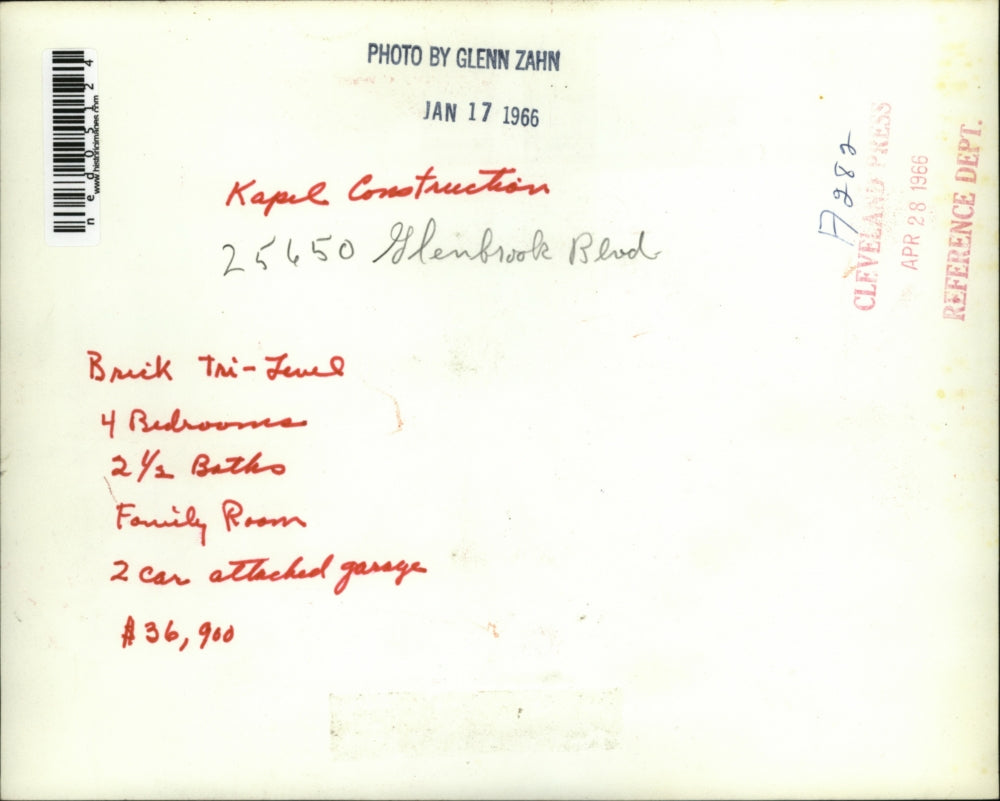 PHOTO BY GLENN ZAHN
JAN 17 1966
Kapel Construction
25650 Glenbrook Blvd
Brick Tri-Level
4 Bedrooms
2 1/2 Baths
Family Room
2 car attached garage
$36,900
CLEVELAND PRESS
APR 28 1966
REFERENCE DEPT.
ned05124
www.historicimages.com